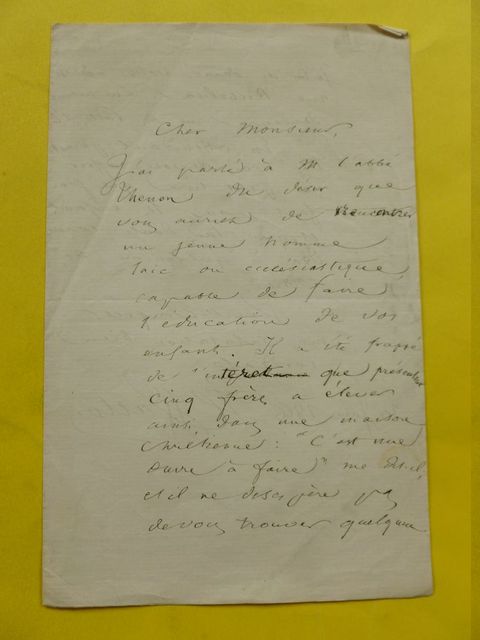 Cher Monsieur,
J'ai parlé à M l'abbé
Thenon du désir que
vous auriez de rencontrer
un jeune homme
laic ou ecclésiastique,
capable de faire
l'éducation de vos
enfants. Il a été frappé
de l'intéret que présentent
cinq frères à élever
ainsi dans une maison
chrétienne : "C'est une
œuvre à faire" me dit-il,
et il ne désespère pas
de vous trouver quelqu'un